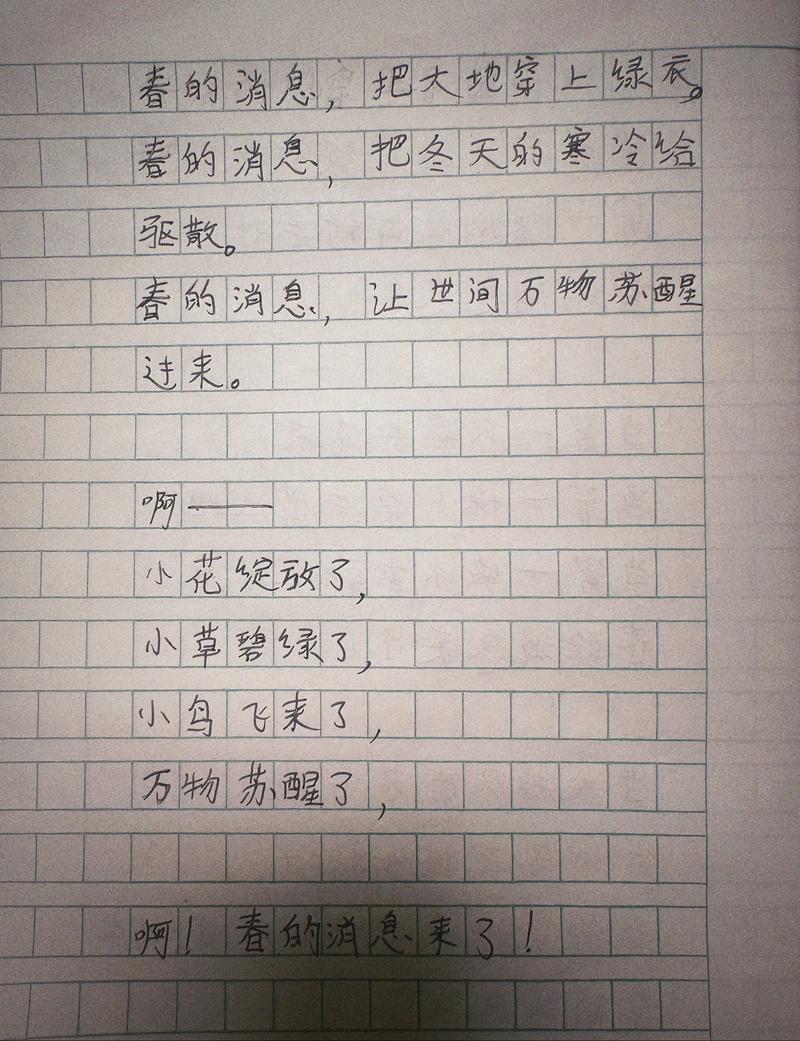 春的消息，把大地穿上绿衣。
春的消息，把冬天的寒冷给
驱散。
春的消息，让世间万物苏醒
过来。
啊——
小花绽放了，
小草碧绿了，
小鸟飞来了，
万物苏醒了，
啊！春的消息来了！